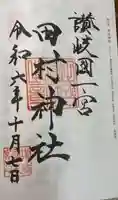 讃岐国一宮
田村神社
令和六年十月七日